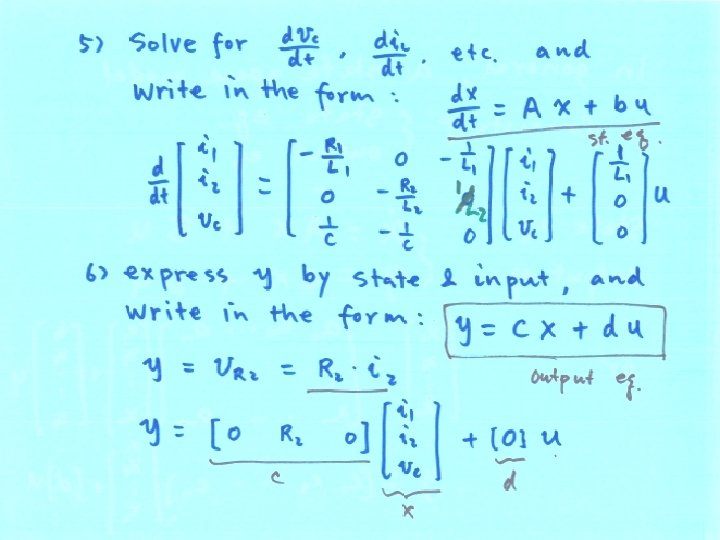 5) Solve for dvc/dt , di2/dt , etc. and
write in the form : dx/dt = A x + b u
st. eq.
d/dt [ i1 i2 vc ] = [ -R1/L1 0 -1/L1 ; 0 -R2/L2 1/L2 ; 1/C -1/C 0 ] [ i1 i2 vc ] + [ 1/L1 0 0 ] u
6) express y by state & input, and
write in the form : y = c x + d u
y = VR2 = R2 · i2 output eq.
y = [0 R2 0] [ i1 i2 vc ] + [0] u
c x d